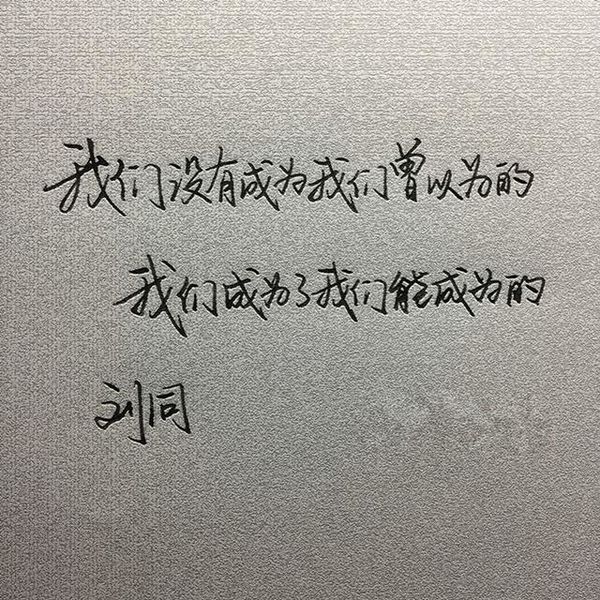 我们没有成为我们曾以为的
我们成为了我们能成为的
刘同